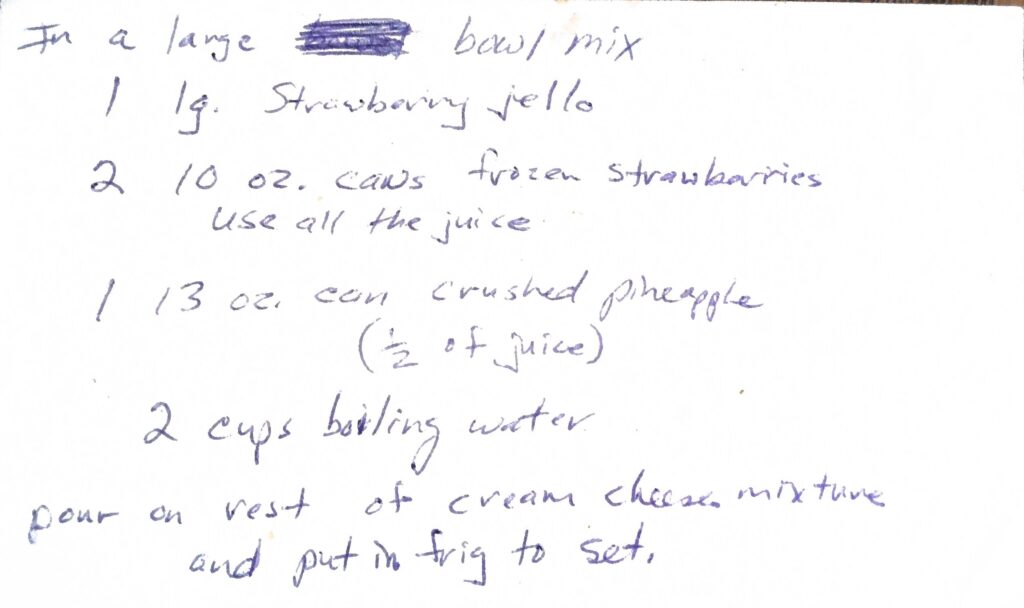 In a large bowl mix
1 lg. Strawberry jello
2 10 oz. cans frozen strawbarries
Use all the juice
1 13 oz. can crushed pineapple
(1/2 of juice)
2 cups boiling water
pour on rest of cream cheese mixture
and put in frig to set.